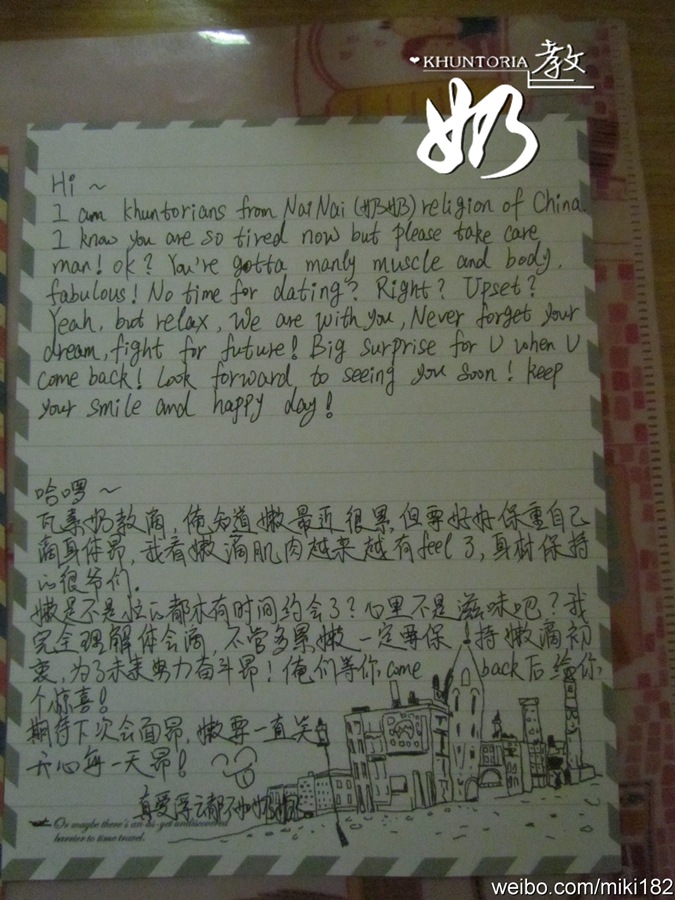 KHUNTORIA 教
奶
Hi ~
I am khuntorians from NaiNai (奶奶) religion of China.
I know you are so tired now but please take care
man! ok? You're gotta manly muscle and body.
fabulous! No time for dating? Right? Upset?
Yeah, but relax, We are with you, Never forget your
dream, fight for future! Big surprise for U when U
come back! Look forward to seeing you soon! keep
your smile and happy day!
哈啰~
瓦素奶教滴，俺知道嫩最近很累，但要好好保重自己
滴身体昂，我看嫩滴肌肉越来越有feel了，身材保持
的很爷们。
嫩是不是忙的都木有时间约会了？心里不是滋味吧？我
完全理解体会滴，不管多累，嫩一定要保持嫩滴初
衷，为了未来努力奋斗昂！俺们等你come back后给你
个惊喜！
期待下次会面昂，嫩要一直笑
开心每一天昂！
真爱浮云都不如
Or maybe there's an as-yet undiscovered
barrier to time travel.
weibo.com/miki182